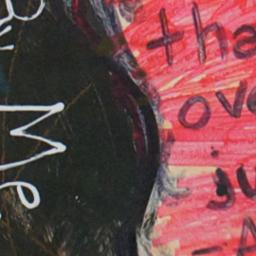 By Me
tha
ove
ju
-A